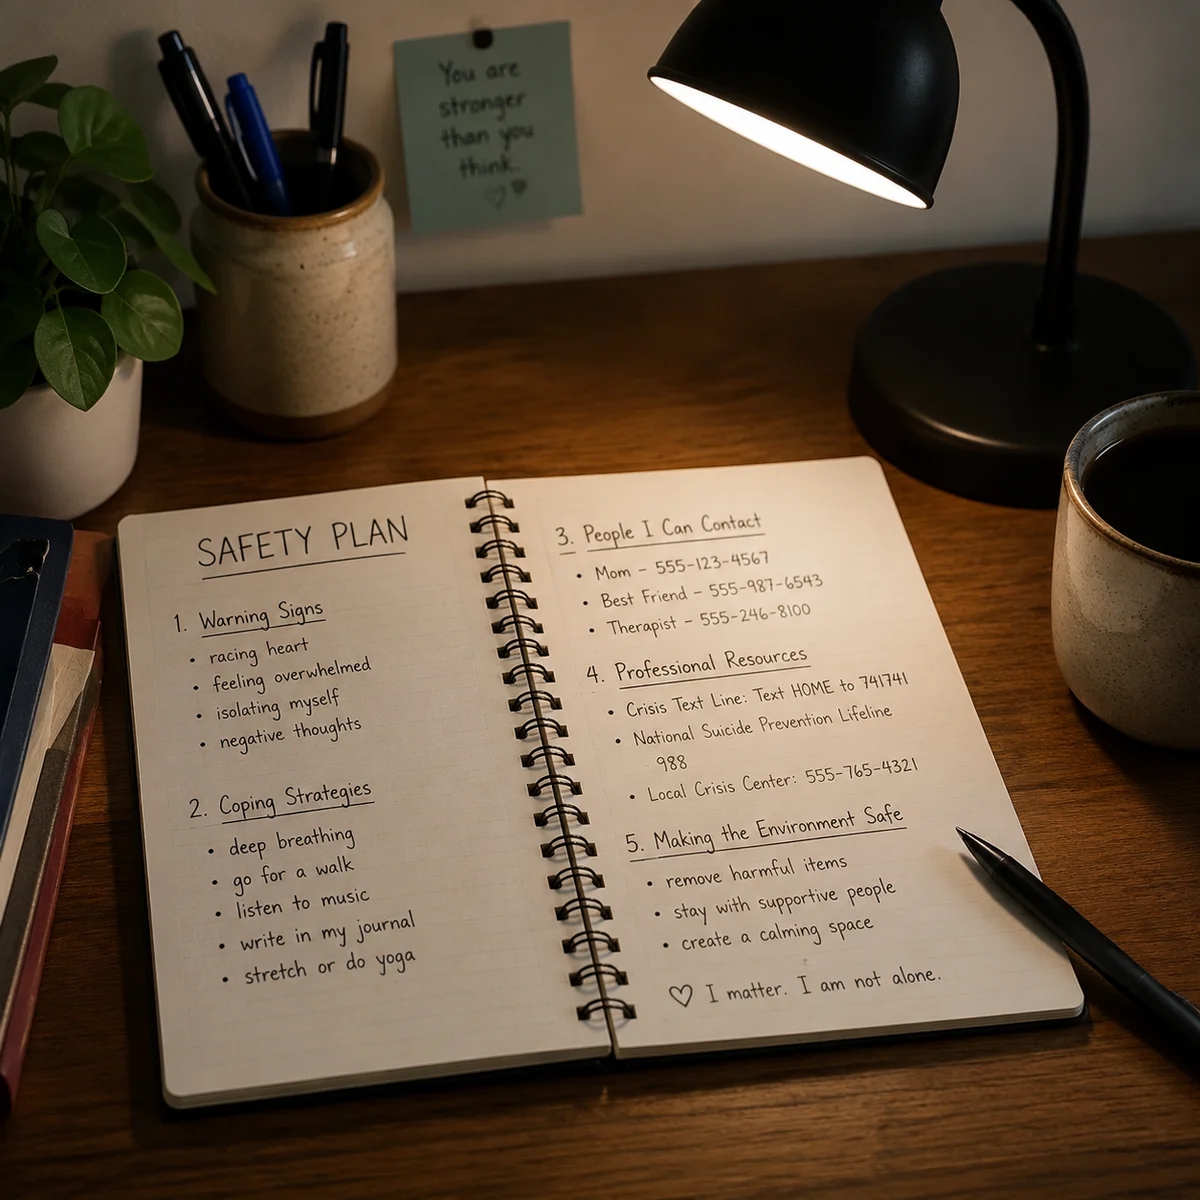 You are
stronger
than you
think.
SAFETY PLAN
1. Warning Signs
• racing heart
• feeling overwhelmed
• isolating myself
• negative thoughts
2. Coping Strategies
• deep breathing
• go for a walk
• listen to music
• write in my journal
• stretch or do yoga
3. People I Can Contact
• Mom – 555-123-4567
• Best Friend – 555-987-6543
• Therapist – 555-246-8100
4. Professional Resources
• Crisis Text Line: Text HOME to 741741
• National Suicide Prevention Lifeline
988
• Local Crisis Center: 555-765-4321
5. Making the Environment Safe
• remove harmful items
• stay with supportive people
• create a calming space
♡ I matter. I am not alone.